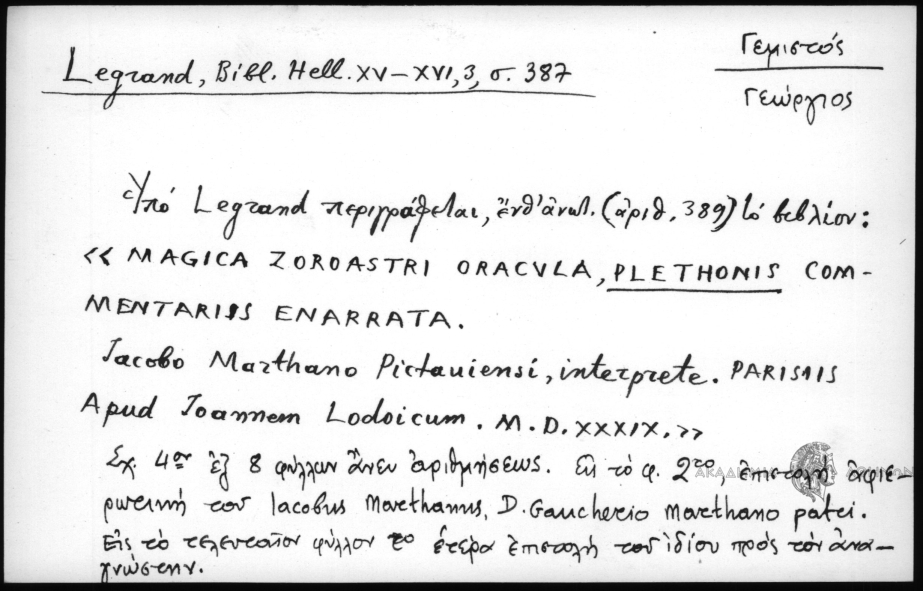 Legrand, Bibl. Hell. XV–XVI, 3, σ. 387
Γεμιστός
Γεώργιος
Ὑπό Legrand περιγράφεται, ἔνθ' ἀνωτ. (ἀριθ. 389) τό βιβλίον:
<< MAGICA ZOROASTRI ORACVLA, PLETHONIS COM-
MENTARIIS ENARRATA.
Iacobo Marthano Pictauiensi, interprete. PARISIIS
Apud Ioannem Lodoicum. M. D. XXXIX. >>
Σχ. 4ον ἐξ 8 φύλλων ἄνευ ἀριθμήσεως. Εἰς τό φ. 2το, ἐπιστολή ἀφιε-
ρωτική τοῦ Iacobus Marthanus, D. Gaucherio Marthano patri.
Εἰς τό τελευταῖον φύλλον το ἑτέρα ἐπιστολή τοῦ ἰδίου πρός τόν ἀνα-
γνώστην.
ΑΚΑΔΗΜΙΑ ΑΘΗΝΩΝ